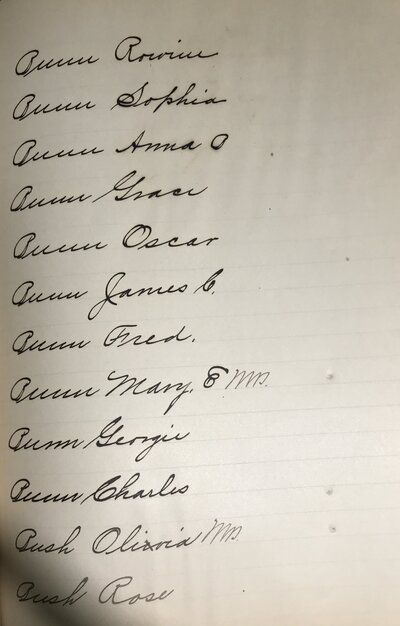 Bunn Rowine
Bunn Sophia
Bunn Anna B
Bunn Grace
Bunn Oscar
Bunn James C.
Bunn Fred.
Bunn Mary. E Mrs.
Bunn Georgie
Bunn Charles
Bush Olizvia Mrs.
Bush Rose